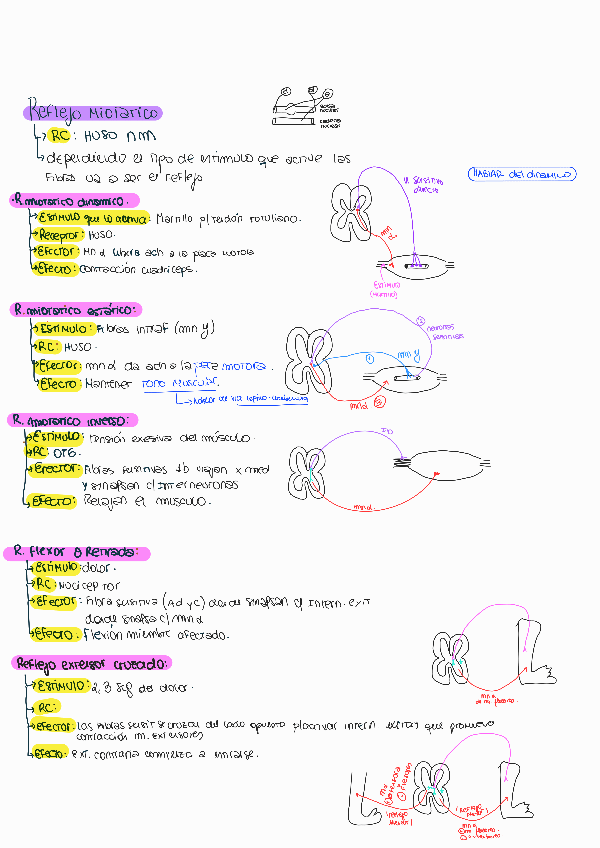 Reflejo Miotatico
RC: HUSO NM
dependiendo el tipo de estimulo que active las
fibras va a ser el reflejo
HABLAR del dinamico
R. miotatico dinamico.
Estimulo que lo activa: Martillo p/ tendón rotuliano.
Receptor: HUSO.
Efector: Mnα libera ach a la placa motora
Efecto: contracción cuadriceps.
mnα
Estimulo
R. miotatico estático:
Estimulo: Fibras intraf (mn γ)
RC: HUSO.
Efector: mnα da ach a la placa motora.
Efecto: Mantener tono muscular.
neuronas
sensitivas
mn γ
mnα
R. miotatico inverso:
Estimulo: tensión exesiva del músculo.
RC: OTG.
Efector: Fibras sensitivas Ib viajan x med
y sinapsan c/ interneuronas
Efecto: Relajan el musculo.
Ib
mnα
R. Flexor o Retirada:
Estimulo: dolor.
RC: Nociceptor
Efector: Fibra sensitiva (Aδ y C) donde sinapsan c/ intern. exit
donde sinapsa c/ mnα
Efecto: Flexión miembro afectado.
mnα
Reflejo extensor cruzado:
Estimulo: 2, 3 seg del dolor.
RC:
Efector: Las fibras sensit se cruzan del lado opuesto p/ activar intern exitat que promueve
contracción m. extensores
Efecto: Ext. contraria completa a alejarse.
(Reflejo
flexor)
mnα